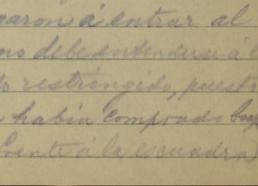 garon á entrar al
no debe entenderse á l
do restringido, puesto
habia comprado
frente á la escuadra